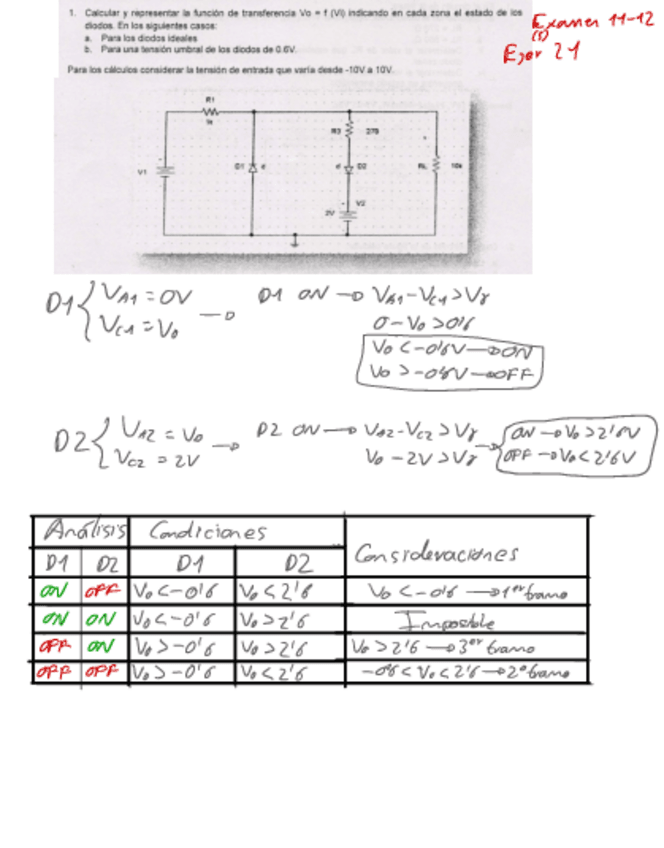 1. Calcular y representar la función de transferencia Vo = f (Vi) indicando en cada zona el estado de los
diodos. En los siguientes casos:
a. Para los diodos ideales
b. Para una tensión umbral de los diodos de 0.6V.
Para los cálculos considerar la tensión de entrada que varía desde -10V a 10V.
Examen 11-12
(1)
Ejer 21
R1
1k
R3 270
V1
D1
D2
RL 10k
V2
2V
D1 { VA1 = 0V → D1 ON → VA1 - VC1 > Vγ
VC1 = Vo
0 - Vo > 0'6
Vo < -0'6V → ON
Vo > -0'6V → OFF
D2 { VA2 = Vo → D2 ON → VA2 - VC2 > Vγ → { ON → Vo > 2'6V
VC2 = 2V
Vo - 2V > Vγ
OFF → Vo < 2'6V
Análisis Condiciones Consideraciones
D1 D2 D1 D2
ON OFF Vo < -0'6 Vo < 2'6 Vo < -0'6 → 1er tramo
ON ON Vo < -0'6 Vo > 2'6 Imposible
OFF ON Vo > -0'6 Vo > 2'6 Vo > 2'6 → 3er tramo
OFF OFF Vo > -0'6 Vo < 2'6 -0'6 < Vo < 2'6 → 2º tramo